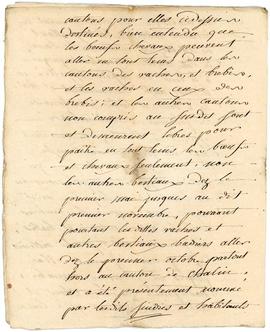 cantons pour elles cidessus
destinés, bien entendu que
les boeufs chevaux peuvent
aller en tous tems dans les
cantons des vaches, et brebis,
et les vaches en ceux des
brebis; et les autres cantons
non compris au sont
et demeurent libres pour
paitre en tout tems les boeufs
et chevaux seulement, non
les autres bestiaux dez le
premier mai jusques au dit
premier novembre, pouvant
pourtant les dittes vaches et
autres bestiaux aller
dez le premier octobre partout
hors au canton de
et a été presentement
par lesdits sindics et habitants